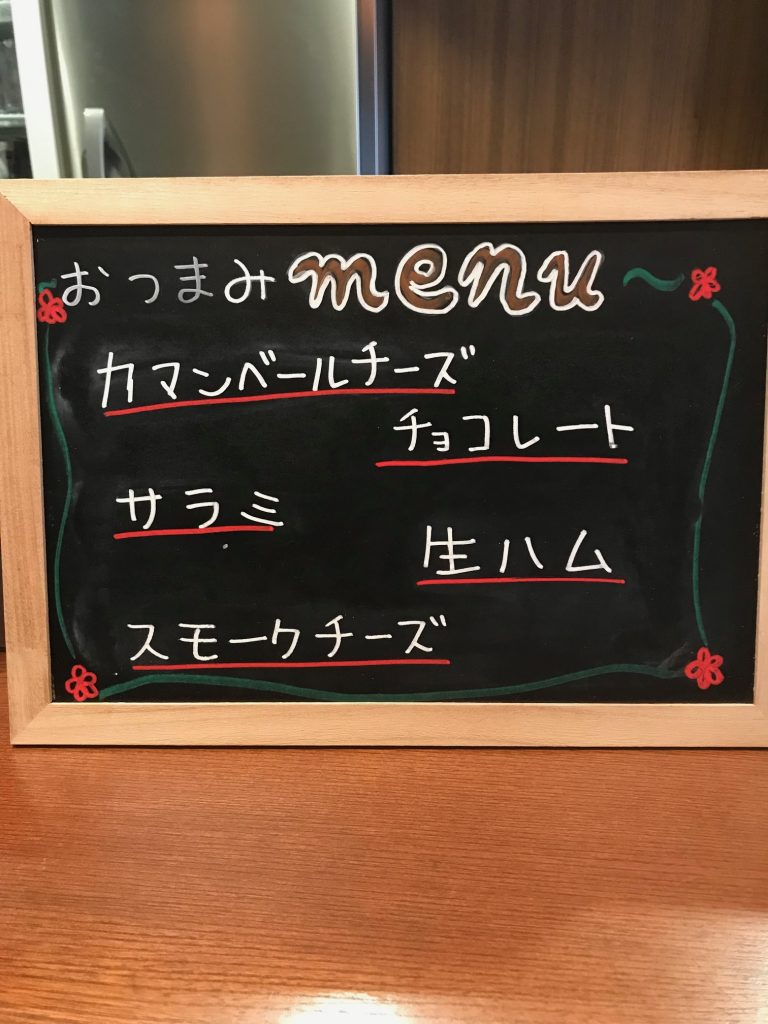 おつまみmenu～
カマンベールチーズ
チョコレート
サラミ
生ハム
スモークチーズ